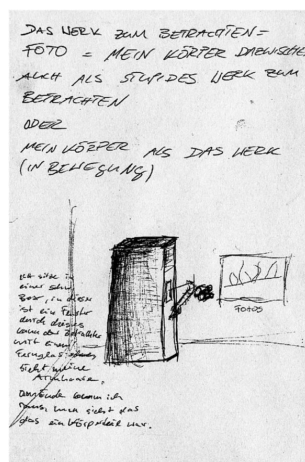 DAS WERK ZUM BETRACHTEN=
FOTO = MEIN KÖRPER DAZWISCHE
AUCH ALS STUPIDES WERK ZUM
BETRACHTEN
ODER
MEIN KÖRPER ALS DAS WERK
(IN BEWEGUNG)
ICH sitze in
einer
Box, in
ist ein Fenster
durch dieses
kann der Betrachter
mit einem
Fernglas
sieht meine
am Ende komm ich
raus, man sieht das
das ein Körperteil war.
FOTOS